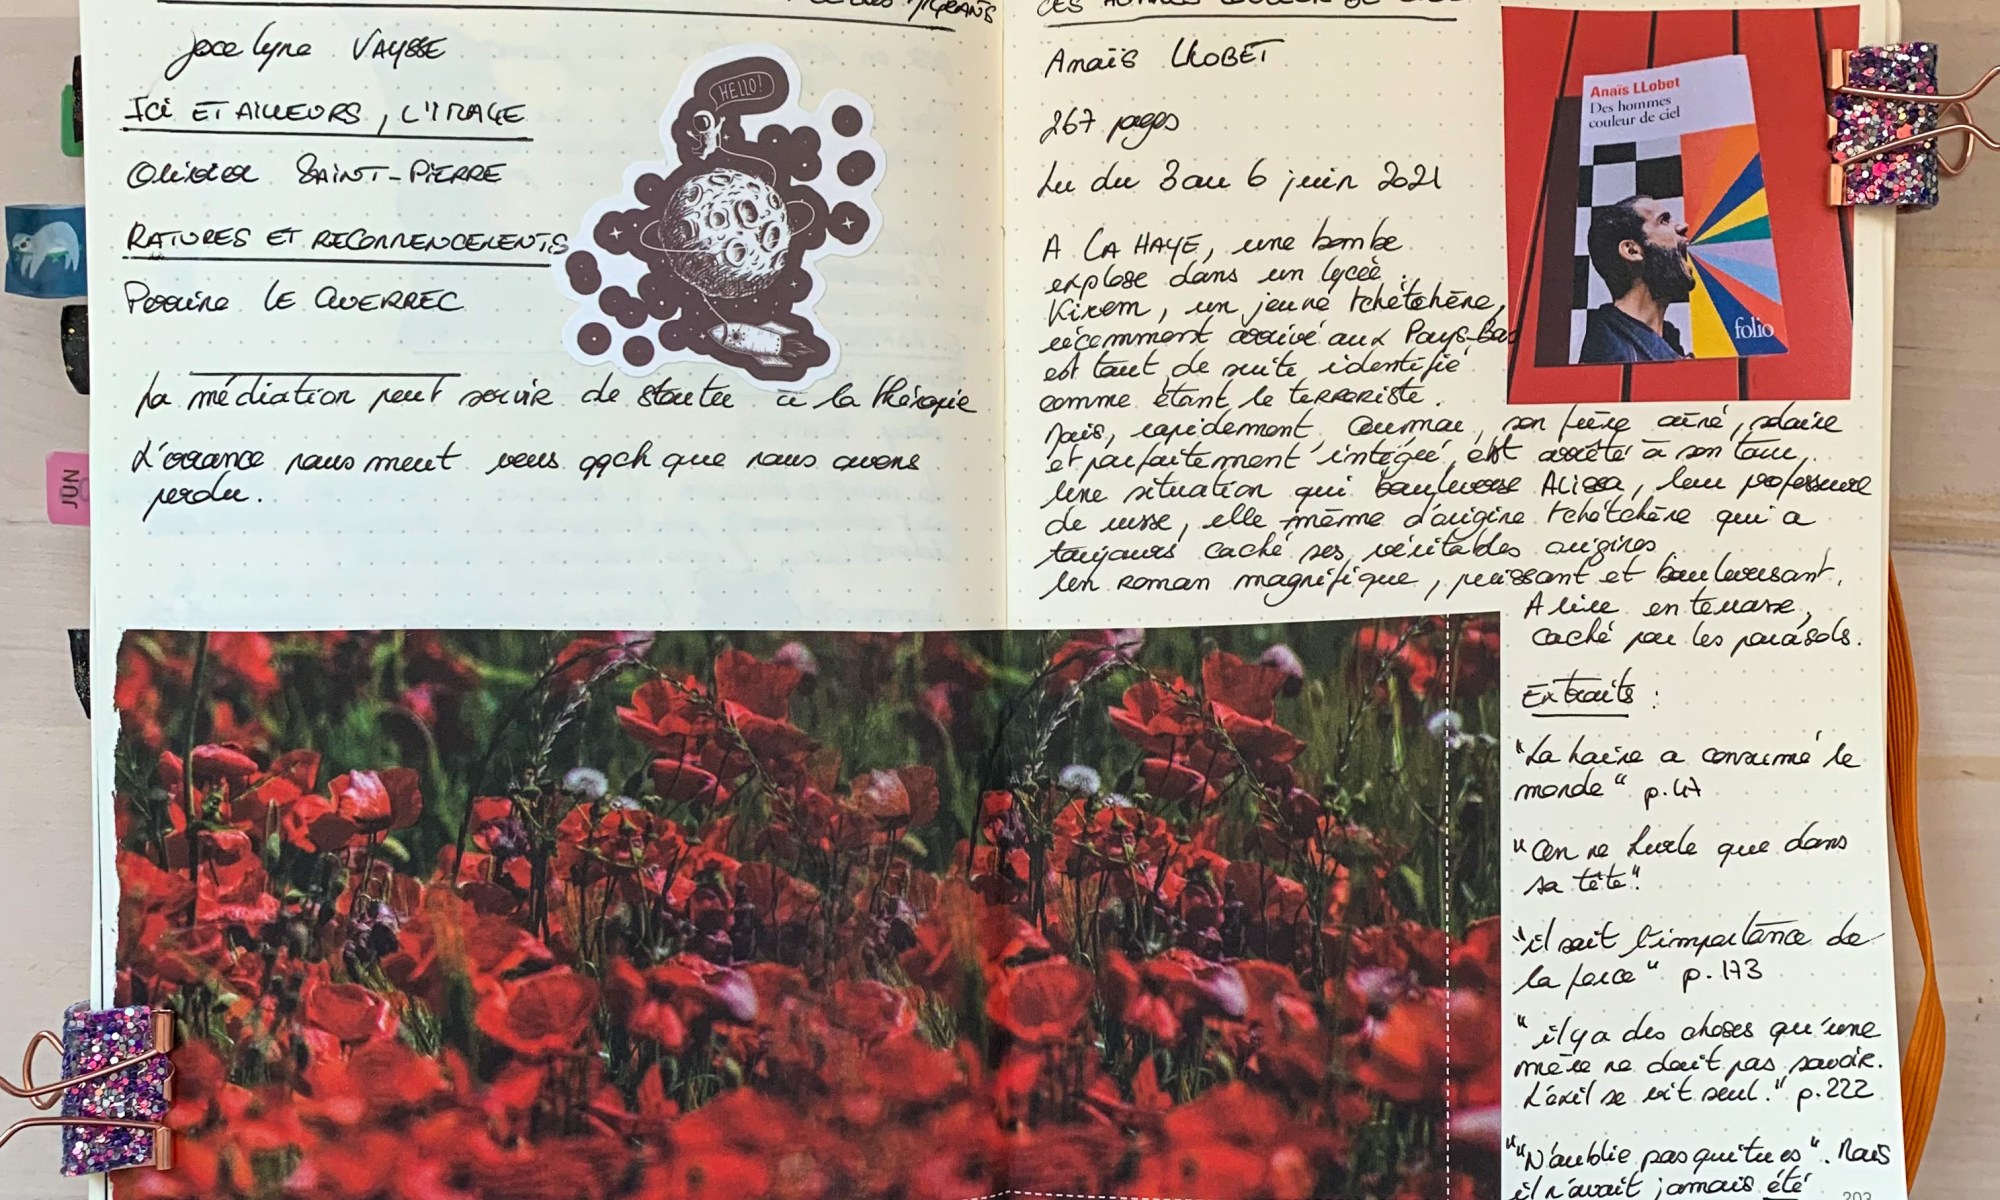 MIGRANTS
Jocelyne VAYSSE
ICI ET AILLEURS, L'IMAGE
Olivier SAINT-PIERRE
RATURES ET RECOMMENCEMENTS
Perrine LE QUERREC
HELLO!
La médiation peut servir de starter à la thérapie
L'errance nous meut vers qqch que nous avons
perdu.
JUN
Anaïs LLOBET
267 pages
Lu du 3 au 6 juin 2021
A LA HAYE, une bombe
explose dans un lycée.
Kirem, un jeune tchétchène,
récemment arrivé aux Pays-Bas
est tout de suite identifié
comme étant le TERRORISTE.
Mais, rapidement, Oumar, son frère aîné, solaire
et parfaitement intégré, est arrêté à son tour.
Une situation qui bouleverse Alissa, leur professeure
de russe, elle même d'origine tchétchène qui a
toujours caché ses véritables origines
Un roman magnifique, puissant et bouleversant.
A lire en terrasse,
caché par les parasols.
Anaïs LLobet
Des hommes
couleur de ciel
folio
Extraits :
"La haine a consumé le
monde" p.47
"On ne hurle que dans
sa tête"
"il sait l'importance de
la force" p.173
"il y a des choses qu'une
mère ne doit pas savoir.
L'exil se vit seul." p.222
""N'oublie pas qui tu es". Mais
il n'avait jamais été
203